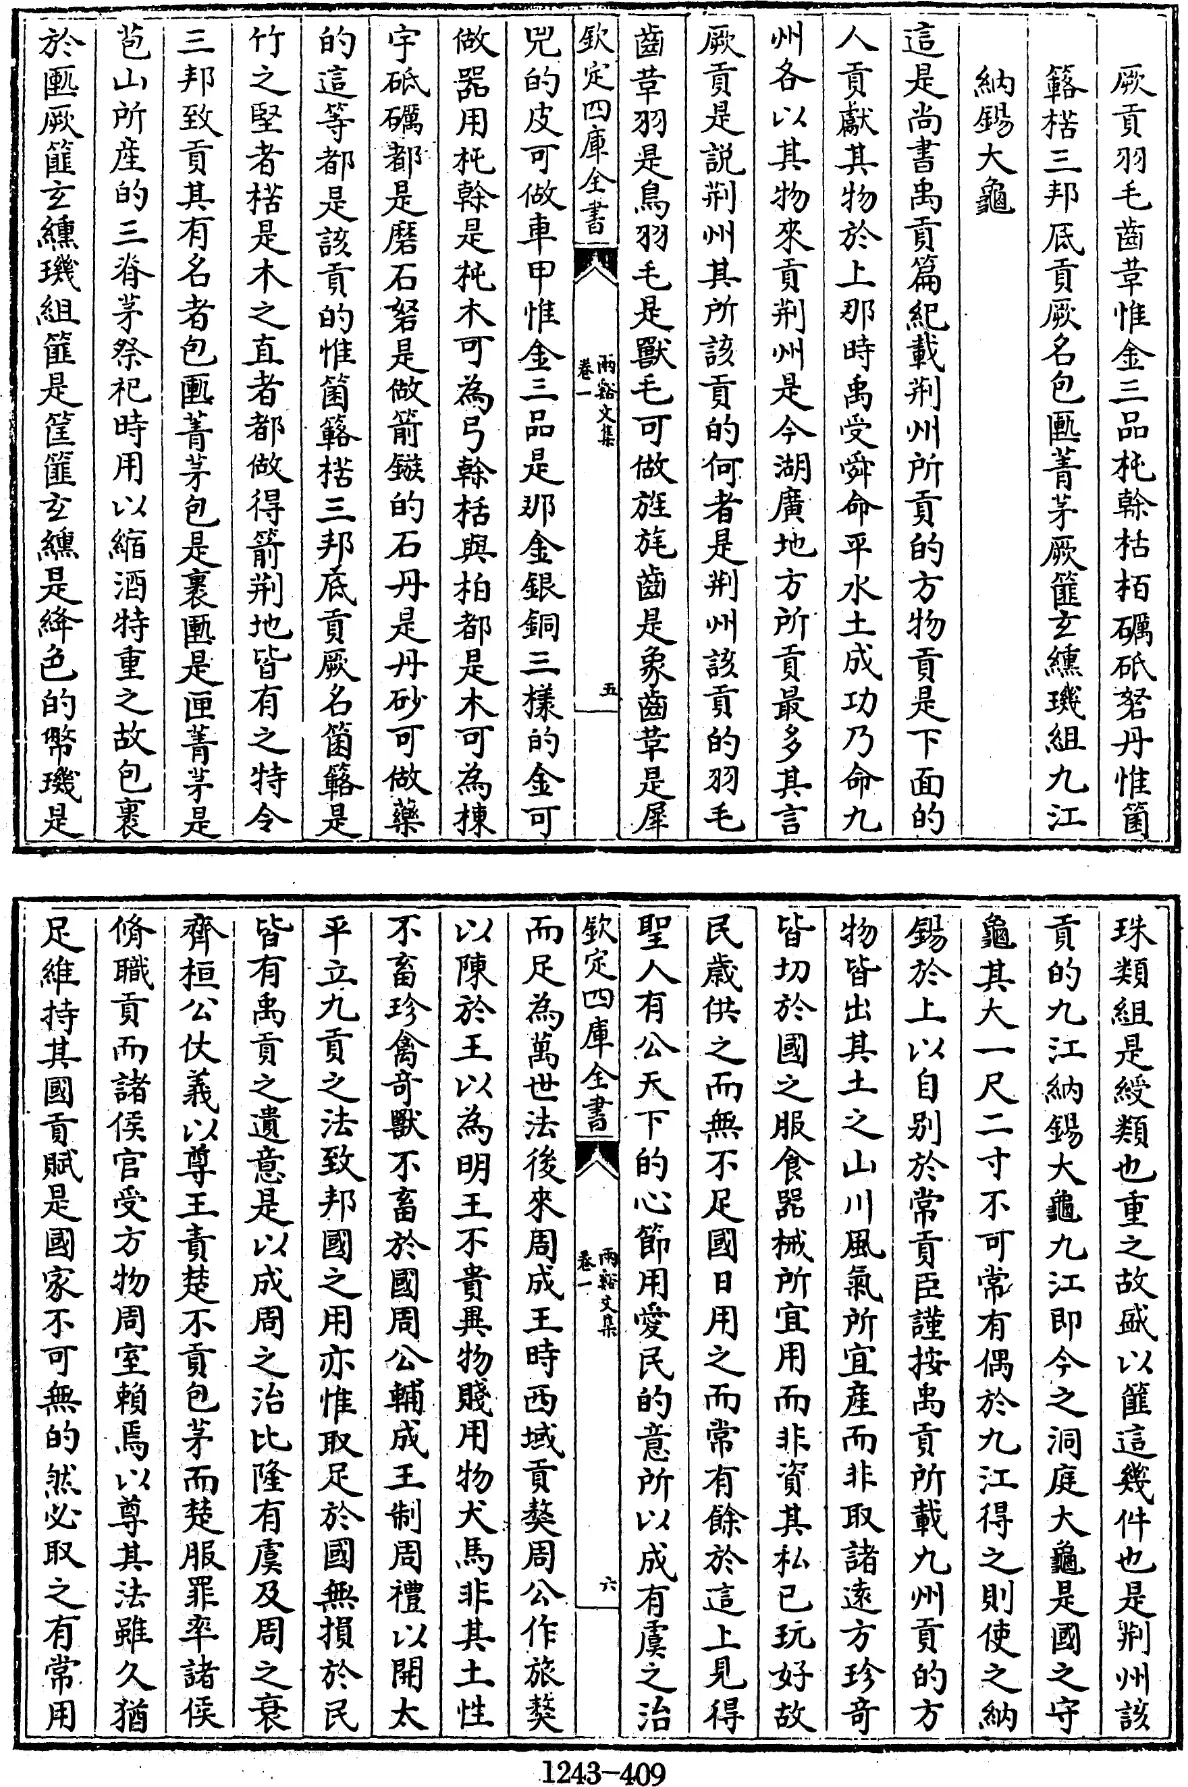 厥貢羽毛齒革惟金三品杶榦栝栢礪砥砮丹惟箘
簵楛三邦厎貢厥名包匭菁茅厥篚玄纁璣組九江
納錫大龜
這是尚書禹貢篇紀載荆州所貢的方物貢是下面的
人貢獻其物於上那時禹受舜命平水土成功乃命九
州各以其物來貢荆州是今湖廣地方所貢最多其言
厥貢是說荆州其所該貢的何者是荆州該貢的羽毛
齒革羽是鳥羽毛是獸毛可做旌旄齒是象齒革是犀
欽定四庫全書
兩谿文集
卷一
五
兕的皮可做車甲惟金三品是那金銀銅三樣的金可
做器用杶榦是杶木可為弓榦栝與柏都是木可為棟
宇砥礪都是磨石砮是做箭鏃的石丹是丹砂可做藥
的這等都是該貢的惟箘簵楛三邦厎貢厥名箘簵是
竹之堅者楛是木之直者都做得箭荆地皆有之特令
三邦致貢其有名者包匭菁茅包是裹匭是匣菁茅是
苞山所産的三脊茅祭祀時用以縮酒特重之故包裹
於匭厥篚玄纁璣組篚是筐篚玄纁是絳色的幣璣是
珠類組是綬類也重之故盛以篚這幾件也是荆州該
貢的九江納錫大龜九江即今之洞庭大龜是國之守
龜其大一尺二寸不可常有偶於九江得之則使之納
錫於上以自别於常貢臣謹按禹貢所載九州貢的方
物皆出其土之山川風氣所宜産而非取諸遠方珍奇
皆切於國之服食器械所宜用而非資其私已玩好故
民歲供之而無不足國日用之而常有餘於這上見得
聖人有公天下的心節用愛民的意所以成有虞之治
欽定四庫全書
兩谿文集
卷一
六
而足為萬世法後來周成王時西域貢獒周公作旅獒
以陳於王以為明王不貴異物賤用物犬馬非其土性
不畜珍禽奇獸不畜於國周公輔成王制周禮以開太
平立九貢之法致邦國之用亦惟取足於國無損於民
皆有禹貢之遺意是以成周之治比隆有虞及周之衰
齊桓公仗義以尊王責楚不貢包茅而楚服罪率諸侯
脩職貢而諸侯官受方物周室賴焉以尊其法雖久猶
足維持其國貢賦是國家不可無的然必取之有常用
1243-409